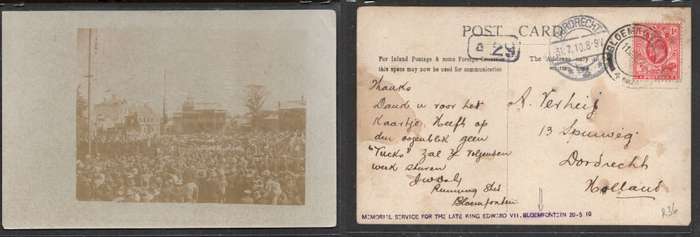 POST CARD
DORDRECHT
31.7.10.8-9V
BLOEMFONTEIN
29
For Inland Postage & some Foreign Countries
this space may now be used for communication
The Address only
Thanks
Dank u voor het
Kaartje. Heeft op
den oogenblik geen
"Tucks" Zal Zy volgenden
week sturen
Running Shed
Bloemfontein
A. Verheij
13 Spuiweg
Dordrecht
Holland
MEMORIAL SERVICE FOR THE LATE KING EDWARD VII, BLOEMFONTEIN 20-5-10